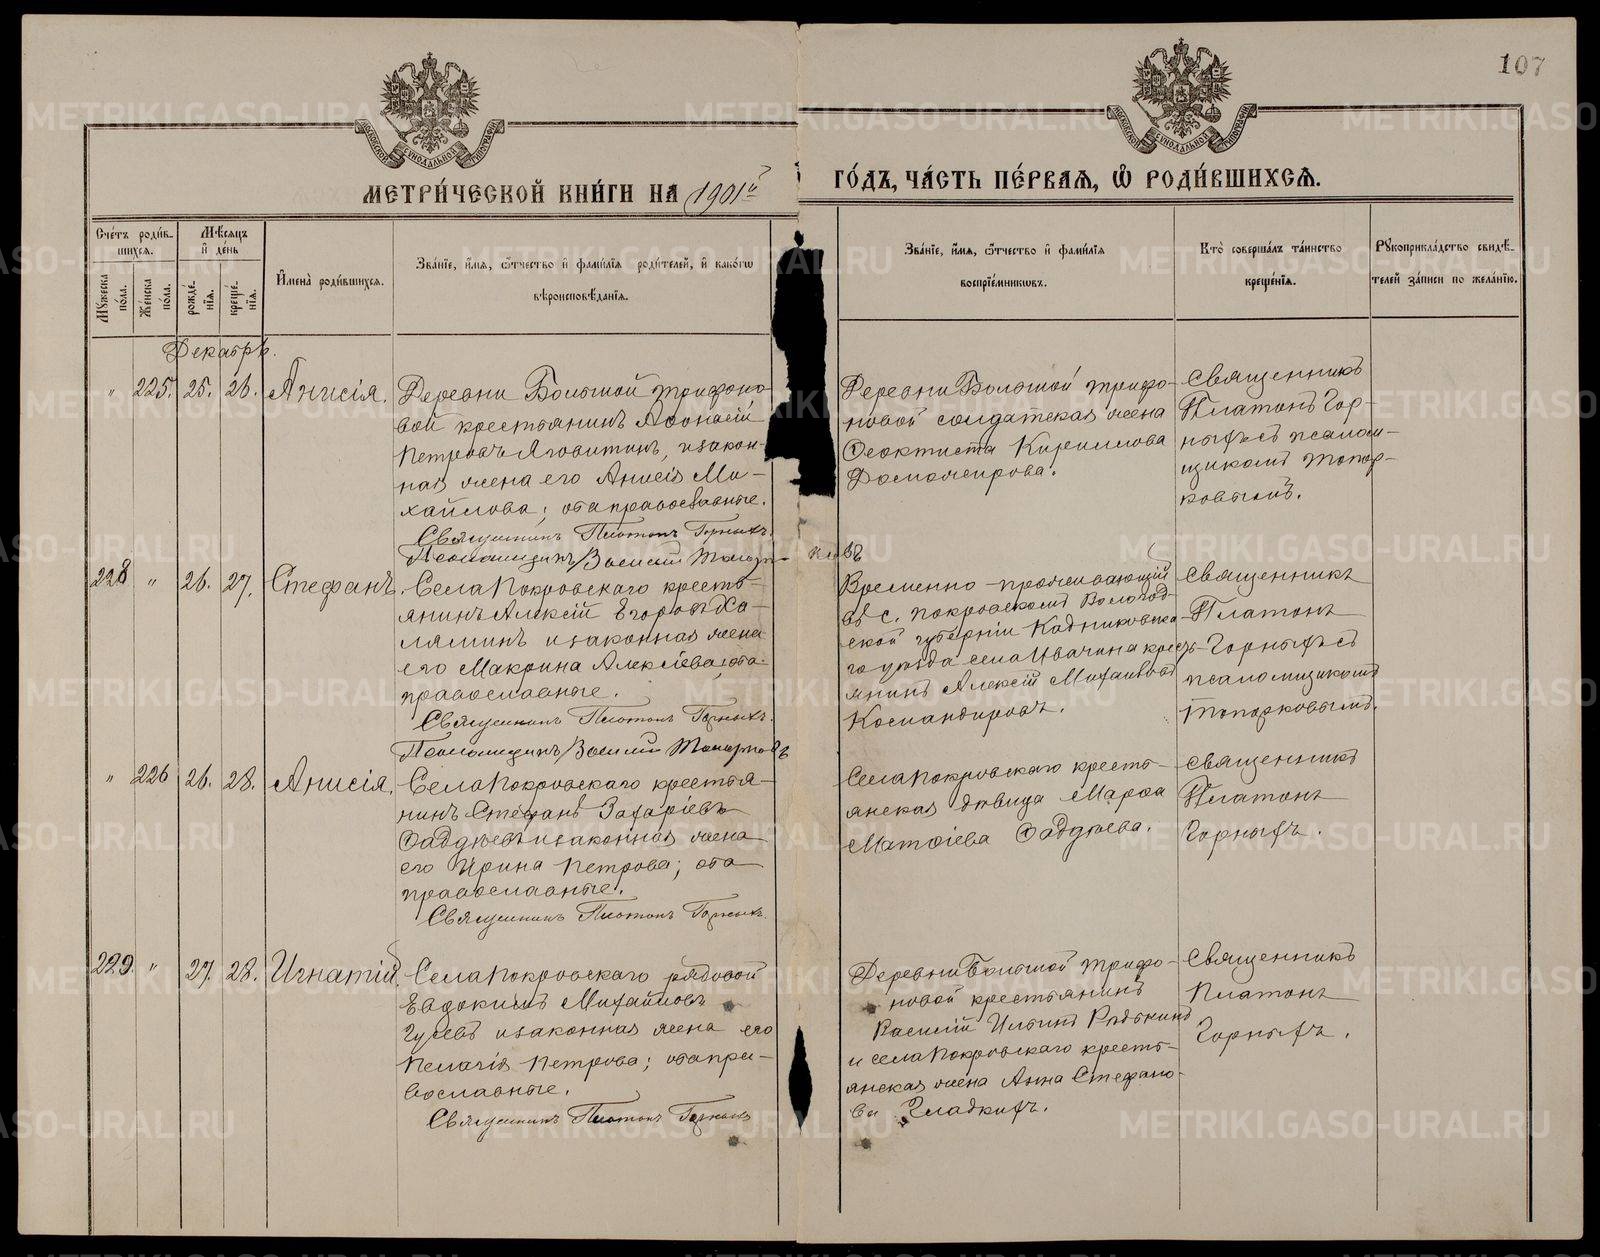 107
МЕТРИ́ЧЕСКОЙ КНИ́ГИ НА 1901й ГО́ДЪ, ЧА́СТЬ ПЕ́РВАЯ, Ѡ РОДИ́ВШИХСЯ.
Сче́тъ роди́вшихся.
Мѣ́сяцъ и де́нь
Му́жеска по́ла.
Же́нска по́ла.
рожде́нїя.
креще́нїя.
И҆мена̀ роди́вшихся.
Зва́нїе, и҆́мя, ѻ҆́тчество и҆ фами́лїя роди́телей, и҆ како́гѡ
вѣроисповѣ́данїя.
Зва́нїе, и҆́мя, ѻ҆́тчество и҆ фами́лїя
воспрїе́мниковъ.
Кто̀ соверша́лъ та́инство
креще́нїя.
Рукоприкла́дство свидѣ́-
телей за́писи по жела́нїю.
Декабрь.
" 225. 25. 26. Анисія.
Деревни Большой Трифоно-
вой крестьянинъ Аѳонасій
Петровъ Яговитинъ, и закон-
ная жена его Анисія Ми-
хайлова; оба православные.
Священникъ Платонъ Горныхъ.
Псаломщикъ Василій Топорковъ
Деревни Большой Трифо-
новой солдатская жена
Ѳеоктиста Кириллова
Доможирова.
Священникъ
Платонъ Гор-
ныхъ съ псалом-
щикомъ Топор-
ковымъ.
228 " 26. 27. Стефанъ.
Села Покровскаго кресть-
янинъ Алексій Егоровъ Ха-
ляминъ и законная жена
его Макрина Алексіева; оба
православные.
Священникъ Платонъ Горныхъ.
Псаломщикъ Василій Топорковъ
Временно-проживающій
въ с. Покровскомъ Вологод-
ской губерніи Кадниковска-
го уѣзда села Ивачина кресть-
янинъ Алексій Михайловъ
Космандировъ.
Священникъ
Платонъ
Горныхъ съ
псаломщикомъ
Топорковымъ.
" 226 26. 28. Анисія.
Села Покровскаго крестья-
нинъ Стефанъ Захаріевъ
Ѳаддѣевъ и законная жена
его Ирина Петрова; оба
православные.
Священникъ Платонъ Горныхъ.
Села Покровскаго кресть-
янская дѣвица Марѳа
Матѳіева Ѳаддѣева.
Священникъ
Платонъ
Горныхъ.
229. " 27. 28. Игнатій.
Села Покровскаго рядовой
Евдокимъ Михайловъ
Гусевъ и законная жена его
Пелагія Петрова; оба пра-
вославные.
Священникъ Платонъ Горныхъ
Деревни Большой Трифо-
новой крестьянинъ
Василій Ильинъ Рядькинъ
и села Покровскаго кресть-
янская жена Анна Стефано-
ва Гладкихъ.
Священникъ
Платонъ
Горныхъ.
METRIKI.GASO-URAL.RU